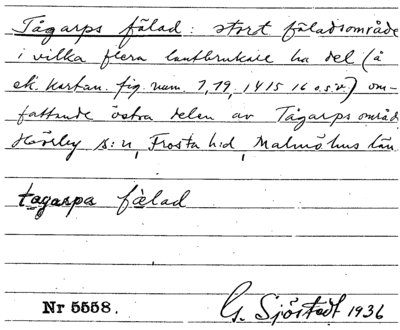 Tågarps fälad: stort fäladsområde
i vilka flera lantbrukare ha del (å
ek. kartan. fig. num. 7, 79, 14 15 16 o.s.v.) om-
fattande östra delen av Tågarps område
Hörby s:n, Frosta h:d, Malmöhus län
tagarpa fälad
Nr 5558.
G. Sjöstedt 1936